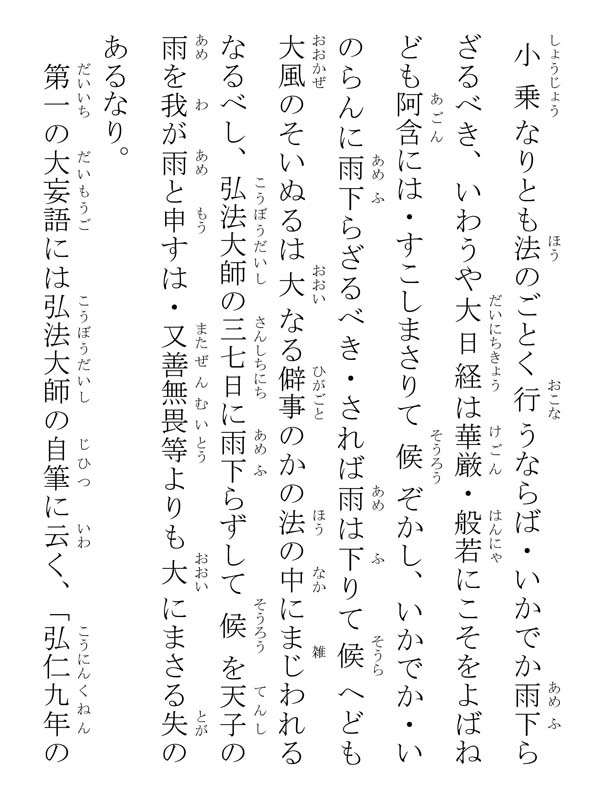 小乗なりとも法のごとく行うならば・いかでか雨下ら
ざるべき、いわうや大日経は華厳・般若にこそをよばね
ども阿含には・すこしまさりて候ぞかし、いかでか・い
のらんに雨下らざるべき・されば雨は下りて候へども
大風のそいぬるは大なる僻事のかの法の中にまじわれる
なるべし、弘法大師の三七日に雨下らずして候を天子の
雨を我が雨と申すは・又善無畏等よりも大にまさる失の
あるなり。
第一の大妄語には弘法大師の自筆に云く、「弘仁九年の